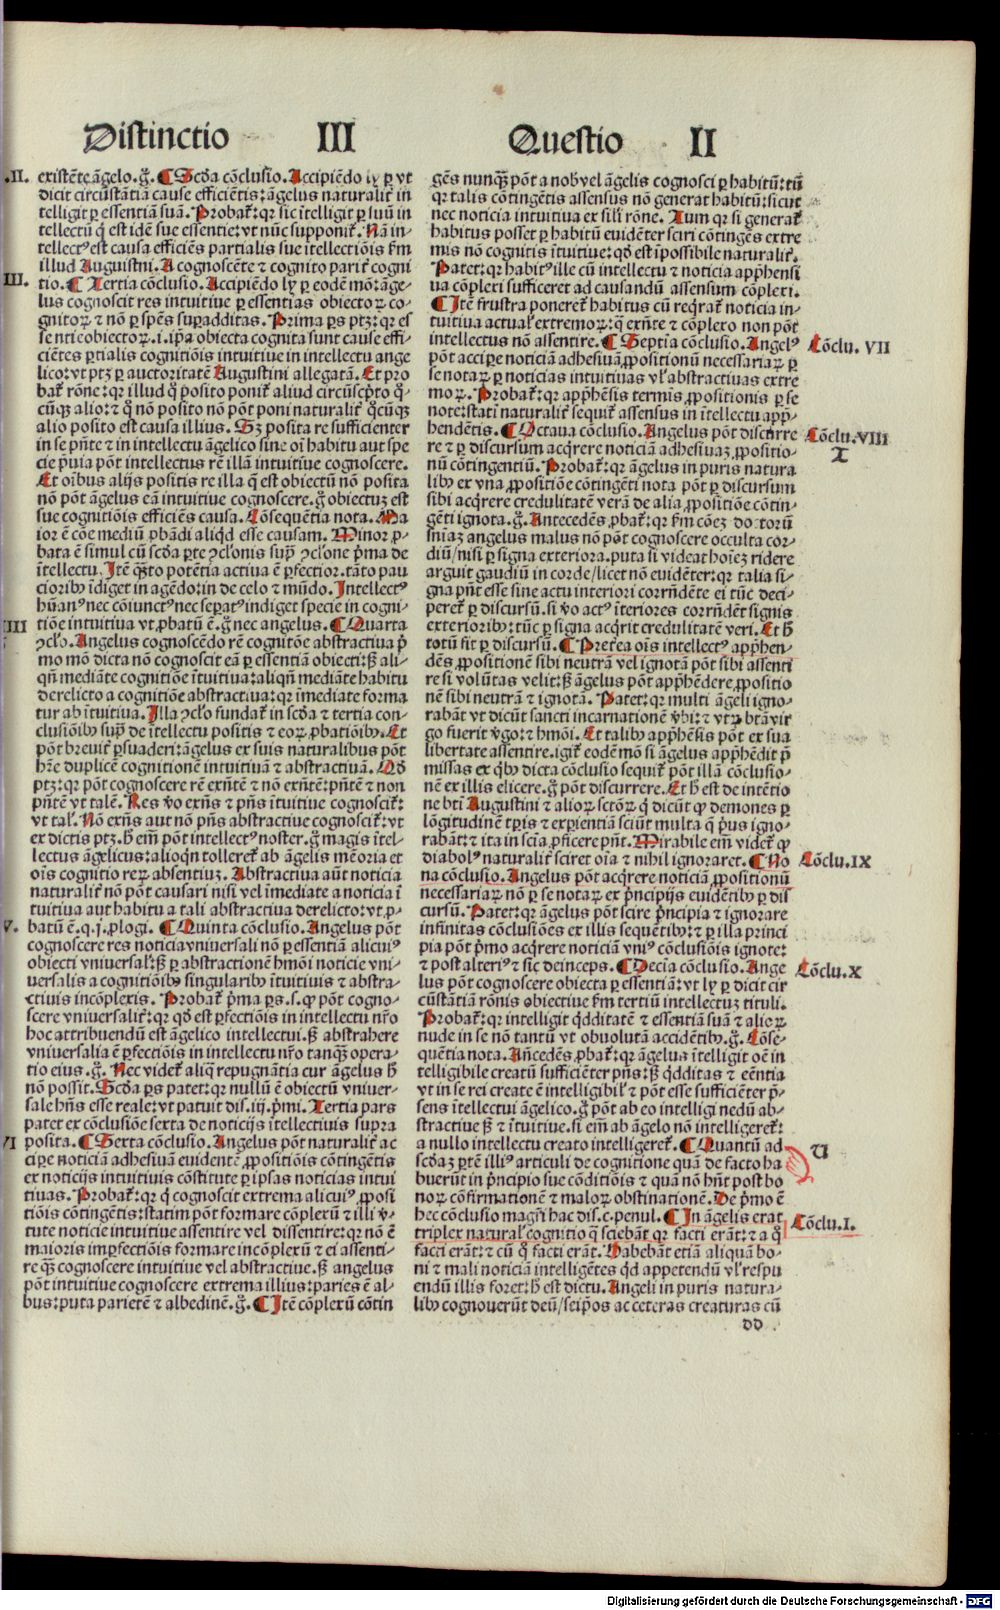 Distinctio III Questio II
.II. existẽte ãgelo. g̃. ¶ Scd̃a cõclusio. Accipiẽdo ly ꝑ vt
dicit circũstãtiã cause efficiẽtis: ãgelus naturalit̃ in
telligit ꝑ essentiã suã. Probat̃: qꝛ sic ĩtelligit ꝑ suũ in
tellectũ q̇ est idẽ sue essentie: vt nũc supponit̃. Nã in-
tellectꝰ est causa efficiẽs partialis sue ĩtellectiõis ẜm
illud Augustini. A cognoscẽte ⁊ cognito parit̃ cogni
III. tio. ¶ Tertia cõclusio. Accipiẽdo ly ꝑ eodẽ mõ: ãge-
lus cognoscit res intuitiue ꝑ essentias obiectoꝝ co-
gnitoꝝ ⁊ nõ ꝑ spẽs suꝑadditas. Prima ꝑs ptꝫ: qꝛ es
se nti e obiectoꝝ .i. ip̃a obiecta cognita sunt cause effi-
ciẽtes ꝑtialis cognitiõis intuitiue in intellectu ange
lico: vt ptꝫ ꝑ auctoritatẽ Augustini allegatã. Et pro
bat̃ rõne: qꝛ illud q̊ posito ponit̃ aliud circũscp̃to q̊-
cũqꝫ alio: ⁊ q̊ nõ posito nõ põt poni naturalit̃ q̊cũqꝫ
alio posito est causa illius. Sꝫ posita re sufficienter
in se pñte ⁊ in intellectu ãgelico sine oĩ habitu aut spe
cie p̃uia põt intellectus rẽ illã intuitiue cognoscere.
Et oĩbus alijs positis re illa q̃ est obiectũ nõ posita
nõ põt ãgelus eã intuitiue cognoscere. g̃ obiectuꝫ est
sue cognitiõis efficiẽs causa. Cõsequẽtia nota. Ma
ior ẽ cõe mediũ ꝓbãdi aliqd̃ esse causam. Minor ꝓ-
bata ẽ simul cũ scd̃a ꝑte ꝯclonis suꝑ ꝯclone p̃ma de
ĩtellectu. Itẽ q̃ꝫto potẽtia actiua ẽ ꝑfectior. tãto pau
cioribꝰ ĩdiget in agẽdo: in de celo ⁊ mũdo. Intellectꝰ
hũanꝰ nec cõiunctꝰ nec seꝑatꝰ indiget specie in cogni-
IIII tiõe intuitiua vt ꝓbatũ ẽ. g̃ nec angelus. ¶ Quarta
ꝯclo. Angelus cognoscẽdo rẽ cognitõe abstractiua p̃
mo mõ dicta nõ cognoscit eã ꝑ essentiã obiecti: ß ali-
qñ mediãte cognitiõe ĩtuitiua: aliqñ mediãte habitu
derelicto a cognitiõe abstractiua: qꝛ ĩmediate forma
tur ab ĩtuitiua. Illa ꝯclo fundat̃ in scd̃a ⁊ tertia con-
clusiõibꝰ suꝑ de ĩtellectu positis ⁊ eoꝝ ꝓbatiõibꝰ. Et
põt breuit̃ ꝑsuaderi: ãgelus ex suis naturalibus põt
hr̃e duplicẽ cognitionẽ intuitiuã ⁊ abstractiuã. Qd̃
ptꝫ: qꝛ põt cognoscere rẽ exñtẽ ⁊ nõ exñtẽ: pñtẽ ⁊ non
pñtẽ vt talẽ. Res v̊o exñs ⁊ pñs ĩtuitiue cognoscit̃:
vt tal̃. Nõ exñs aut nõ pñs abstractiue cognoscit̃: vt
ex dictis ptꝫ. h̃ em̃ põt intellectꝰ noster. g̃ magis ĩtel-
lectus ãgelicus: alioqn̄ tolleret̃ ab ãgelis mẽoria et
oĩs cognitio reꝝ absentiuꝫ. Abstractiua aũt noticia
naturalit̃ nõ põt causari nisi vel ĩmediate a noticia ĩ
tuitiua aut habitu a tali abstractiua derelicto: vt ꝓ-
V. batũ ẽ .q.j. ꝓlogi. ¶ Quinta cõclusio. Angelus põt
cognoscere res noticia vniuersali nõ ꝑ essentiã alicuiꝰ
obiecti vniuersal̃: ß ꝑ abstractionẽ hmõi noticie vni-
uersalis a cognitiõibꝰ singularibꝰ ĩtuitiuis ⁊ abstra-
ctiuis incõplexis. Probat̃ p̃ma ꝑs .s. ꝙ põt cogno-
scere vniuersalit̃: qꝛ qd̃ est ꝑfectiõis in intellectu nr̃o
hoc attribuendũ est ãgelico intellectui. ß abstrahere
vniuersalia ẽ ꝑfectiõis in intellectu nr̃o tanqꝫ opera-
tio eius. g̃. Nec videt̃ aliq̃ repugnãtia cur ãgelus h̃
nõ possit. Scd̃a ꝑs patet: qꝛ nullũ ẽ obiectũ vniuer-
sale hñs esse reale: vt patuit dis. iij. p̃mi. Tertia pars
patet ex cõclusiõe sexta de noticijs ĩtellectiuis supra
VI posita. ¶ Sexta cõclusio. Angelus põt naturalit̃ ac
ciꝑe noticiã adhesiuã euidentẽ ꝓpositiõis cõtingẽtis
ex noticijs intuitiuis cõstitute ꝑ ipsas noticias intui
tiuas. Probat̃: qꝛ q̇ cognoscit extrema alicuiꝰ ꝓposi
tiõis cõtingẽtis: statim põt formare cõplexũ ⁊ illi v̊-
tute noticie intuitiue assentire vel dissentire: qꝛ nõ ẽ
maioris imꝑfectiõis formare incõplexũ ⁊ ei assenti-
re qꝫ cognoscere intuitiue vel abstractiue. ß angelus
põt intuitiue cognoscere extrema illius: paries ẽ al-
bus: puta parietẽ ⁊ albedinẽ. g̃. ¶ Itẽ cõplexũ cõtin
gẽs nunqꝫ põt a nob̃ vel ãgelis cognosci ꝑ habitũ: tũ
qꝛ talis cõtingẽtis assensus nõ generat habitũ: sicut
nec noticia intuitiua ex sil̃i rõne. Tum qꝛ si generat̃
habitus posset ꝑ habitũ euidẽter sciri cõtingẽs extre
mis nõ cognitis ĩtuitiue: qd̃ est ĩpossibile naturalit̃.
Patet: qꝛ habitꝰ ille cũ intellectu ⁊ noticia app̃hensi
ua cõplexi sufficeret ad causandũ assensum cõplexi.
¶ Itẽ frustra poneret̃ habitus cũ reqrat̃ noticia in-
tuitiua actual̃ extremoꝝ: q̃ exñte ⁊ cõplexo non põt
intellectus nõ assentire. ¶ Septia cõclusio. Angelꝰ Cõclu. VII
põt acciꝑe noticiã adhesiuã ꝓpositionũ necessariaꝝ ꝑ
se notaꝝ ꝑ noticias intuitiuas vl̃ abstractiuas extre
moꝝ. Probat̃: qꝛ app̃hẽsis termis ꝓpositionis ꝑ se
note: statĩ naturalit̃ sequit̃ assensus in ĩtellectu app̃-
hendẽtis. ¶ Octaua cõclusio. Angelus põt discurre Cõclu. VIII
re ⁊ ꝑ discursum acq̇rere noticiã adhesiuaꝫ ꝓpositio- T
nũ cõtingentiũ. Probat̃: qꝛ ãgelus in puris natura
libꝰ ex vna ꝓpositiõe cõtingẽti nota põt ꝑ discursum
sibi acq̇rere credulitatẽ verã de alia ꝓpositiõe cõtin-
gẽti ignota. g̃. Antecedẽs ꝓbat̃: qꝛ ẜm cõeꝫ doctorũ
sñiaꝫ angelus malus nõ põt cognoscere occulta cor-
diũ/ nisi ꝑ signa exteriora. puta si videat hoieꝫ ridere
arguit gaudiũ in corde/ licet nõ euidẽter: qꝛ talia si-
gna pñt esse sine actu interiori corrñdẽte ei tũc deci-
peret̃ ꝑ discursũ. si v̊o actꝰ ĩteriores corrñdẽt signis
exterioribꝰ: tũc ꝑ signa acq̇rit credulitatẽ veri. Et h̃
totũ fit ꝑ discursũ. ¶ Preterea oĩs intellectꝰ app̃hen-
dẽs ꝓpositionẽ sibi neutrã vel ignotã põt sibi assenti
re si volũtas velit: ß ãgelus põt app̃hẽdere ꝓpositio
nẽ sibi neutrã ⁊ ignotã. Patet: qꝛ multi ãgeli igno-
rabãt vt dicũt sancti incarnationẽ v̊bi: ⁊ vtꝝ btã vir
go fuerit v̊go: ⁊ hmõi. Et talibꝰ app̃hẽsis põt ex sua
libertate assentire. igit̃ eodẽ mõ si ãgelus app̃hẽdit p̃
missas ex q̇bꝰ dicta cõclusio sequit̃ põt illã cõclusio-
nẽ ex illis elicere. g̃ põt discurrere. Et h̃ est de intẽtio
ne bti Augustini ⁊ alioꝝ sctõꝝ q̇ dicũt ꝙ demones ꝑ
lõgitudinẽ tꝑis ⁊ exꝑientiã sciũt multa q̃ p̃us igno-
rabãt: ⁊ ita in scĩa ꝓficere pñt. Mirabile em̃ videt̃ ꝙ
diabolꝰ naturalit̃ sciret oĩa ⁊ nihil ignoraret. ¶ No Cõclu. IX
na cõclusio. Angelus põt acq̇rere noticiã ꝓpositionũ
necessariaꝝ nõ ꝑ se notaꝝ ex p̃ncipijs euidẽtibꝰ ꝑ dis
cursũ. Patet: qꝛ ãgelus põt scire p̃ncipia ⁊ ignorare
infinitas cõclusiões ex illis sequẽtibꝰ: ⁊ ꝑ illa princi
pia põt p̃mo acq̇rere noticiã vniꝰ cõclusiõis ignote:
⁊ post alteriꝰ ⁊ sic deinceps. ¶ Decia cõclusio. Ange Cõclu. X
lus põt cognoscere obiecta ꝑ essentiã: vt ly ꝑ dicit cir
cũstãtiã rõnis obiectiue ẜm tertiũ intellectuꝫ tituli.
Probat̃: qꝛ intelligit q̇dditatẽ ⁊ essentiã suã ⁊ alioꝝ
nude in se nõ tantũ vt obuolutã accidẽtibꝰ. g̃. Cõse-
quẽtia nota. Añcedẽs ꝓbat̃: qꝛ ãgelus ĩtelligit oẽ in
telligibile creatũ sufficiẽter pñs: ß q̇dditas ⁊ eẽntia
vt in se rei create ẽ intelligibil̃ ⁊ põt esse sufficiẽter p̃-
sens ĩtellectui ãgelico. g̃ põt ab eo intelligi nedũ ab-
stractiue ß ⁊ ĩtuitiue. si em̃ ab ãgelo nõ intelligeret̃:
a nullo intellectu creato intelligeret̃. ¶ Quantũ ad V
scd̃aꝫ ꝑtẽ illiꝰ articuli de cognitione quã de facto ha
buerũt in p̃ncipio sue cõditiõis ⁊ quã nõ hñt post bo
noꝝ cõfirmationẽ ⁊ maloꝝ obstinationẽ. De p̃mo ẽ
hec cõclusio magr̃i hac dis. c. penul. ¶ In ãgelis erat Cõclu. I.
triplex natural̃ cognitio q̃ sciebãt qꝛ facti erãt: ⁊ a q̊
facti erãt: ⁊ cũ q̊ facti erãt. Habebãt etiã aliquã bo-
ni ⁊ mali noticiã intelligẽtes qd̃ appetendũ vl̃ respu
endũ illis foret: h̃ est dictu. Angeli in puris natura-
libꝰ cognouerũt deũ/ seip̃os ac ceteras creaturas cũ
dd
Digitalisierung gefördert durch die Deutsche Forschungsgemeinschaft - DFG